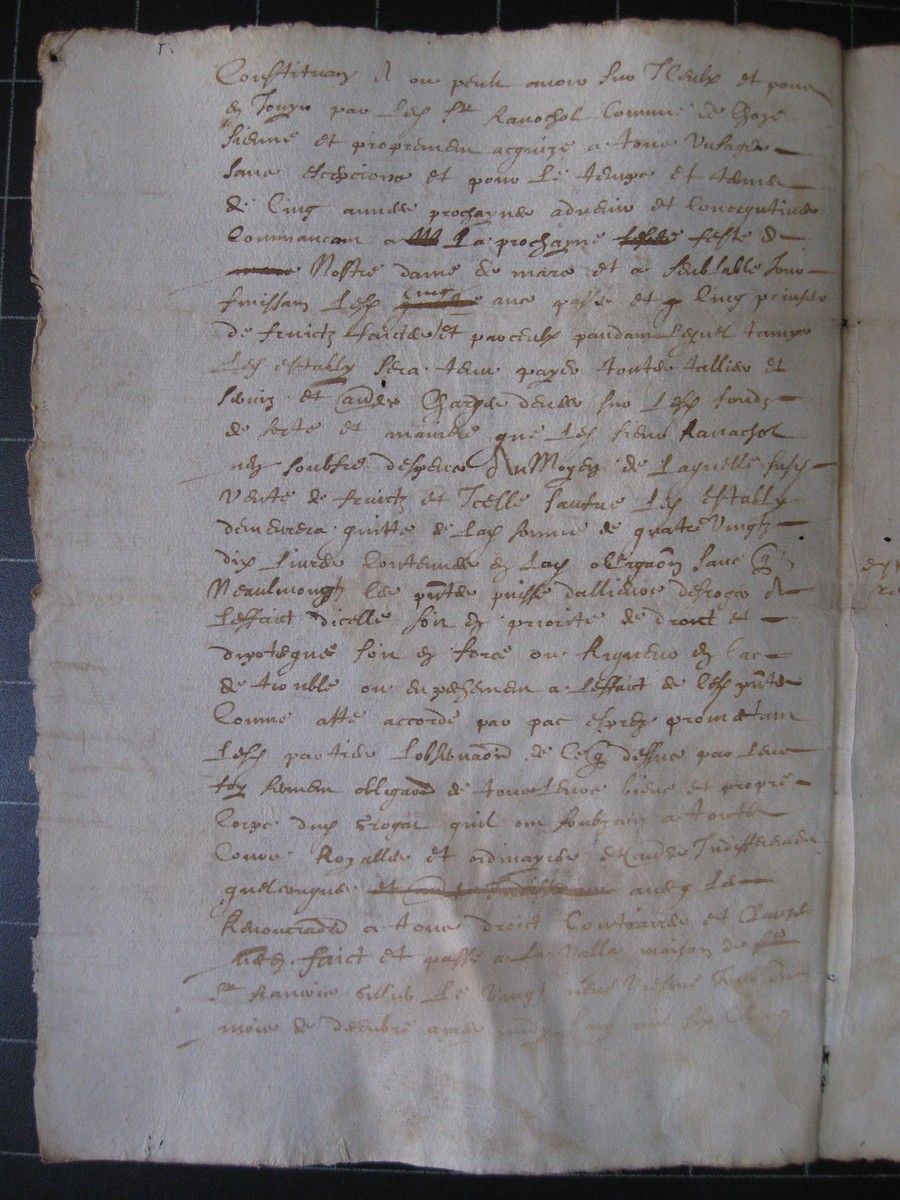 Constituans et ou peult avoir sur Iceulx et pour
en Jouyr par led Sr Ravachol comme de choze
sienne et proprement acquize a tous usages
sans exceptions et pour le temps et terme
de cinq années prochaynes advenir et consequtives
commancant a la prochayne feste de
Nostre dame de mars et a semblable Jour
finissant lesd cinq ans passes et cinq prinses
de fruictz faictes et parceulx pandant lequel temps
led estably sera tenu payer toutes tallies et
servis et autres charges deues sur lesd fondz
de sorte et maniere que led sieur Ravachol
nen souffre despens Au Moyen de laquelle susd
vente de fruictz et Icelle sauve led estably
demeurera quitte de lad somme de quatre vingtz
dix livres contenues en lad obligaon sans q
Neaulmongtz les pntes puisse dallieurs desroger A
leffaict dicelle soit en priorite de droict et
dypoteque soit en force ou Rigueur en cas
de trouble ou enpechement a leffaict de lesd pntes
Comme a este accorde par pac exprez prometant
lesd parties lobservaon de ce q dessus par leur
foy serment obligaon de tous leurs biens et propre
corps dud quil ont soubzmis a toutes
cours Royalles et ordinayres et autres Indifferemen
quelconques avec les
Renonciaons a tous droict contraires et clauzes
faict et passe a La Valla maison de
Sr le vingt neuf viesme Jour du
mois de decembre apres midy mil six